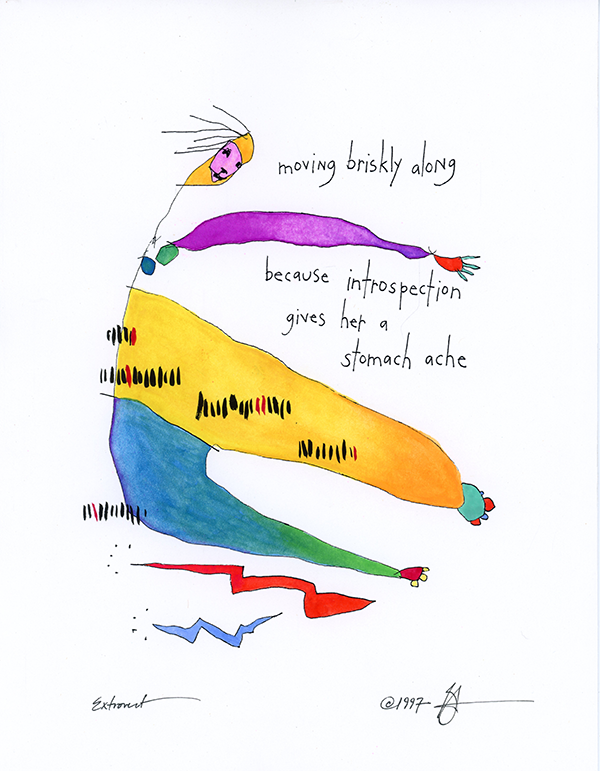 moving briskly along
because introspection
gives her a
stomach ache
Extrovert
©1997